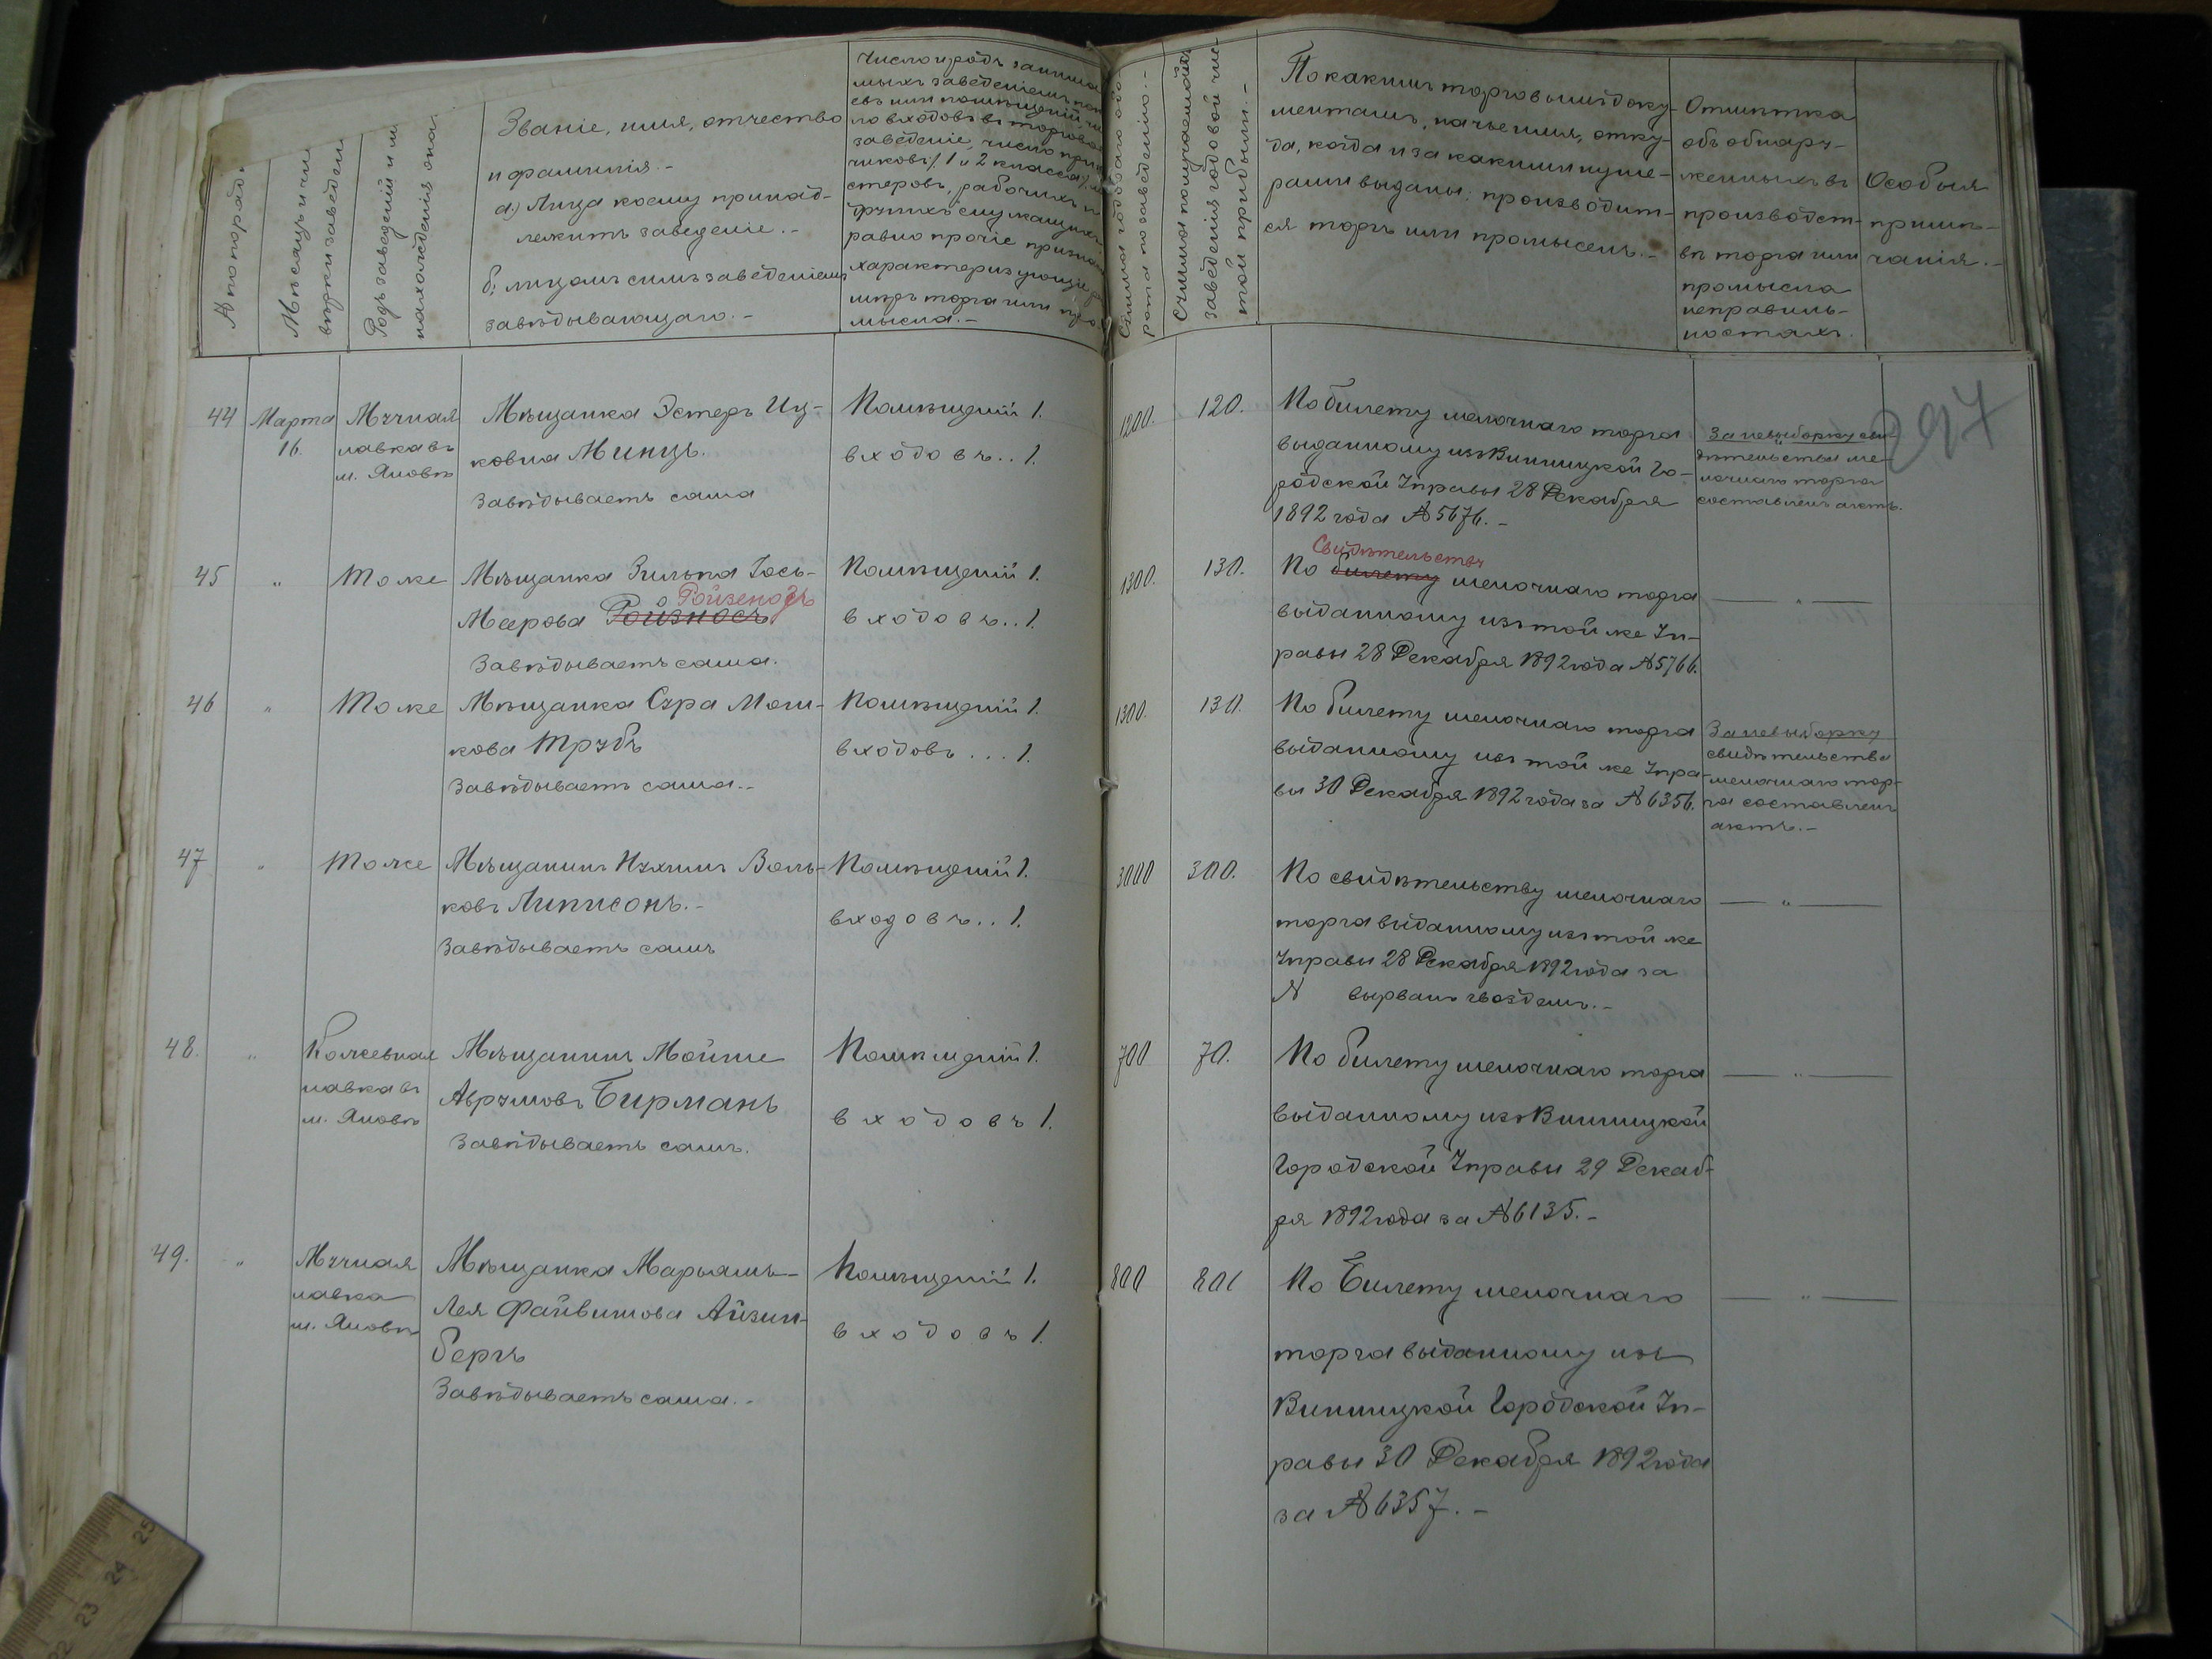 № по порядк
Мѣсяцъ и чи
вѣрки заведен
Родъ заведенія и м
нахожденія она
Званіе, имя, отчество
и фамилія.-
а.) Лица коему принад-
лежитъ заведеніе.-
б; лицомъ симъ заведеніемъ
завѣдывающаго.-
Число и родъ занима
мыхъ заведеніемъ
евъ или помѣщеній
ло входовъ въ торгово
заведеніе, число при
чиковъ/1 и 2 класса/,
стеровъ, рабочихъ и
другихъ служащихъ
равно прочіе призна
характеризующіе
мѣръ торга или про
мысла.-
Сумма годоваго обо-
рота по заведенію.-
Сумма получаемой
заведенія годовой чис
той прибыли.-
По какимъ торговымъ доку-
ментамъ, на чье имя, отку-
да, когда и за какими нуме-
рами выданы: производит-
ся торгъ или промыселъ.-
Отмѣтка
объ обнару-
женныхъ въ
производст-
вѣ торга или
промысла
неправиль-
ностяхъ.
Особыя
примѣ-
чанія.-
297
44
Марта
16.
Мучная
лавка въ
м. Яновѣ
Мѣщанка Эстеръ Иц-
ковна Минцъ.
Завѣдываетъ сама
Помѣщеній 1.
входовъ.. 1.
1200.
120.
По билету мелочнаго торга
выданному изъ Винницкой Го-
родской Управы 28 Декабря
1892 года № 5676.-
За невыборку сви-
дѣтельства ме-
лочнаго торга
составленъ актъ.
45
"
Тоже
Мѣщанка Зильпа Іось-
Ройзеносъ
Меерова Ройзносъ
Завѣдываетъ сама.
Помѣщеній 1.
входовъ.. 1.
1300.
130.
Свидѣтельству
По билету мелочнаго торга
выданному изъ той же Уп-
равы 28 Декабря 1892 года № 5766.
— " —
46
"
Тоже
Мѣщанка Сура Мош-
кова Трубъ
Завѣдываетъ сама.-
Помѣщеній 1.
входовъ... 1.
1300.
130.
По билету мелочнаго торга
выданному изъ той же Упра-
вы 30 Декабря 1892 года за № 6356.
За невыборку
свидѣтельства
мелочнаго тор-
га составленъ
актъ.-
47
"
Тоже
Мѣщанинъ Нухимъ Воль-
ковъ Липисонъ.-
Завѣдываетъ самъ
Помѣщеній 1.
входовъ.. 1.
3000
300.
По свидѣтельству мелочнаго
торга выданному изъ той же
Управы 28 Декабря 1892 года за
№ вырванъ гвоздемъ.-
— " —
48.
"
Кожевная
лавка въ
м. Яновѣ
Мѣщанинъ Мойше
Аврумовъ Бирманъ
Завѣдываетъ самъ.
Помѣщеній 1.
входовъ 1.
700
70.
По билету мелочнаго торга
выданному изъ Винницкой
Городской Управы 29 Декаб-
ря 1892 года за № 6135.-
— " —
49.
"
Мучная
лавка
м. Яновѣ
Мѣщанка Марьямъ-
Лея Файвишова Айзин-
бергъ
Завѣдываетъ сама.-
Помѣщеній 1.
входовъ 1.
800
По Билету мелочнаго
торга выданному изъ
Винницкой Городской Уп-
равы 30 Декабря 1892 года
за № 6357.-
— " —
22 23 24 25